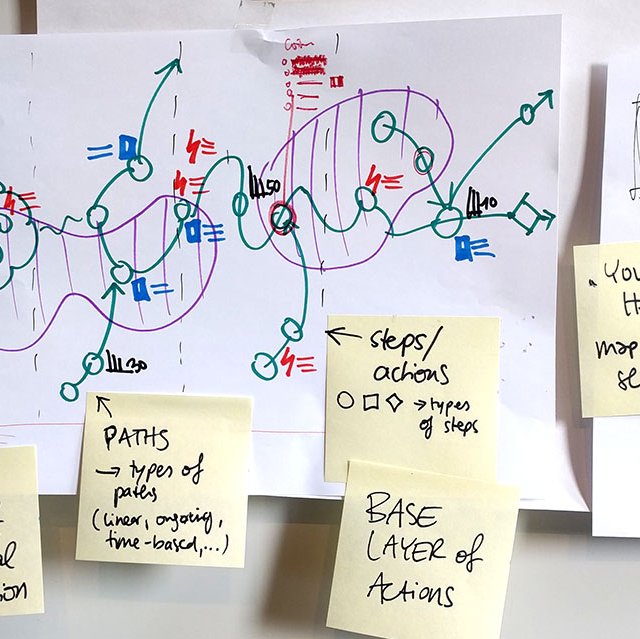 50
10
30
Steps/
actions
→ types
of steps
PATHS
→ types of
paths
(linear, ongoing,
time-based,...)
BASE
LAYER of
Actions
"YOU
H
map
se
al
ion